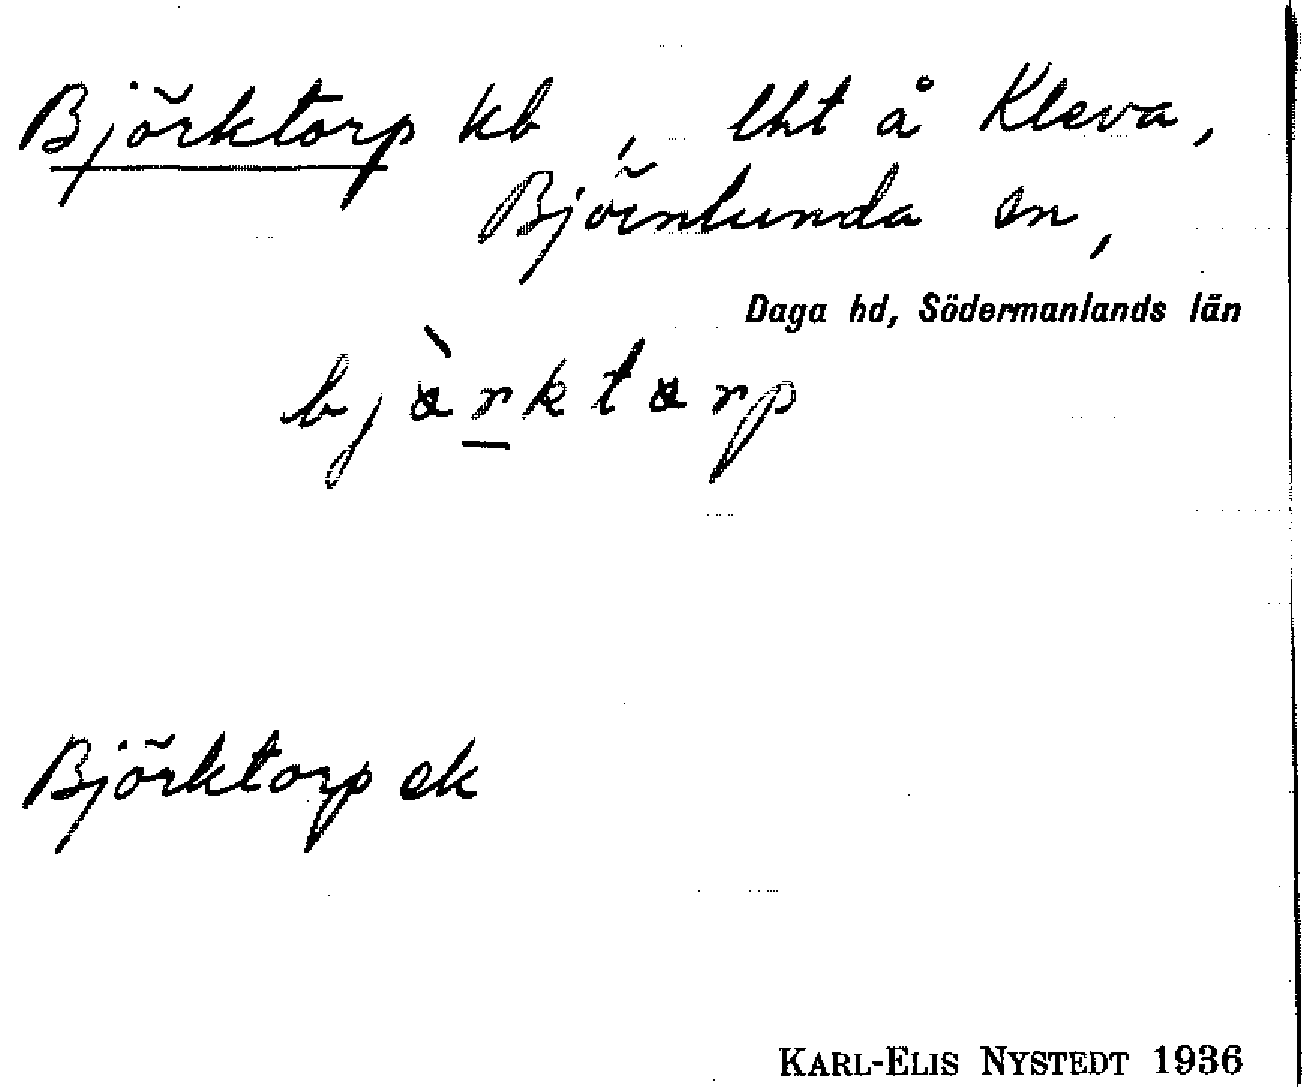 Björktorp kb, lht å Kleva,
Björnlunda sn,
Daga hd, Södermanlands län
Björktorp ek
KARL-ELIS NYSTEDT 1936